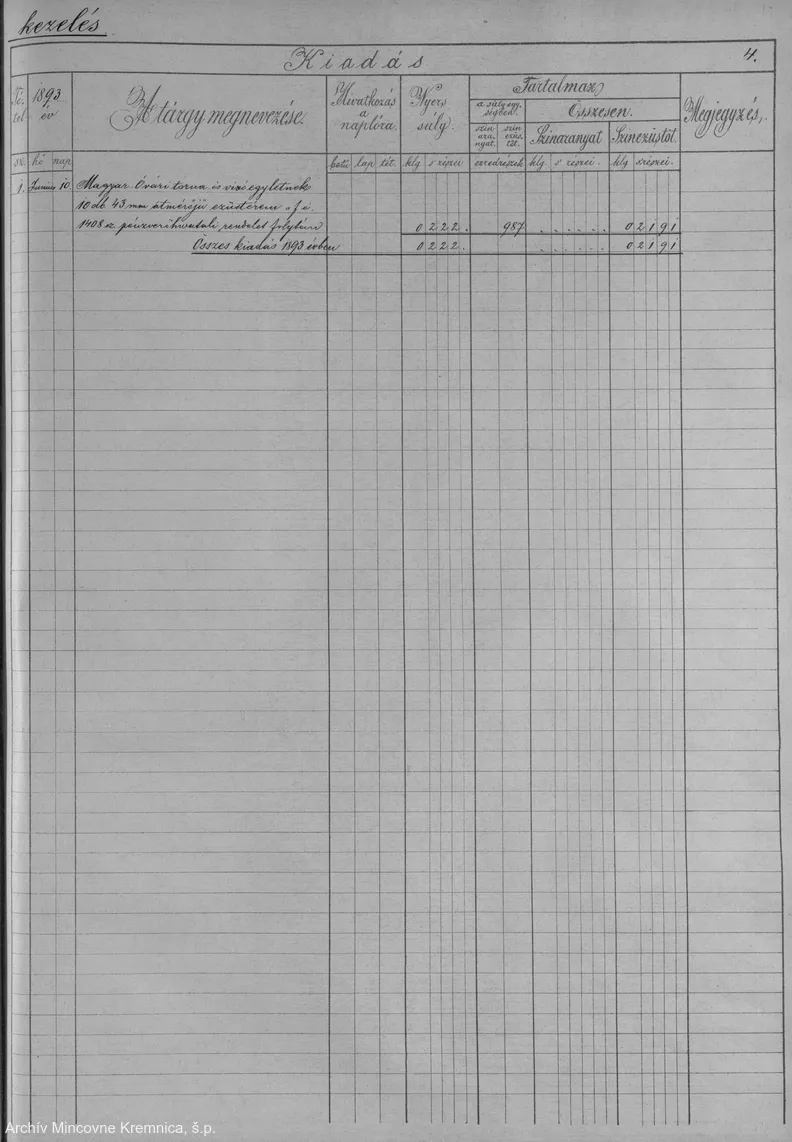 kezelés
Kiadás
4.
Té-
tel
1893
év
A tárgy megnevezése.
Hivatkozás
a
naplóra.
Nyers
súly.
Tartalmaz
a súlyegy-
ségben.
Összesen.
szin
ara-
nyat.
szin
ezüs-
töt.
Szinaranyat
Szinezüstöt.
Megjegyzés.
sz. hó nap
betü lap tét. klg s részei ezredrészek klg s részei. klg s részei.
1. Junius 10. Magyar Óvári torna és vivó egyletnek
10 db 43 mm átmérőjü ezüstérem
1408 sz. pénzverőhivatali rendelet folytán 0 2 2 2 . 987 . . . . . . 0 2 1 9 1
Összes kiadás 1893 évben 0 2 2 2 . . . . . . . 0 2 1 9 1
Archív Mincovne Kremnica, š.p.